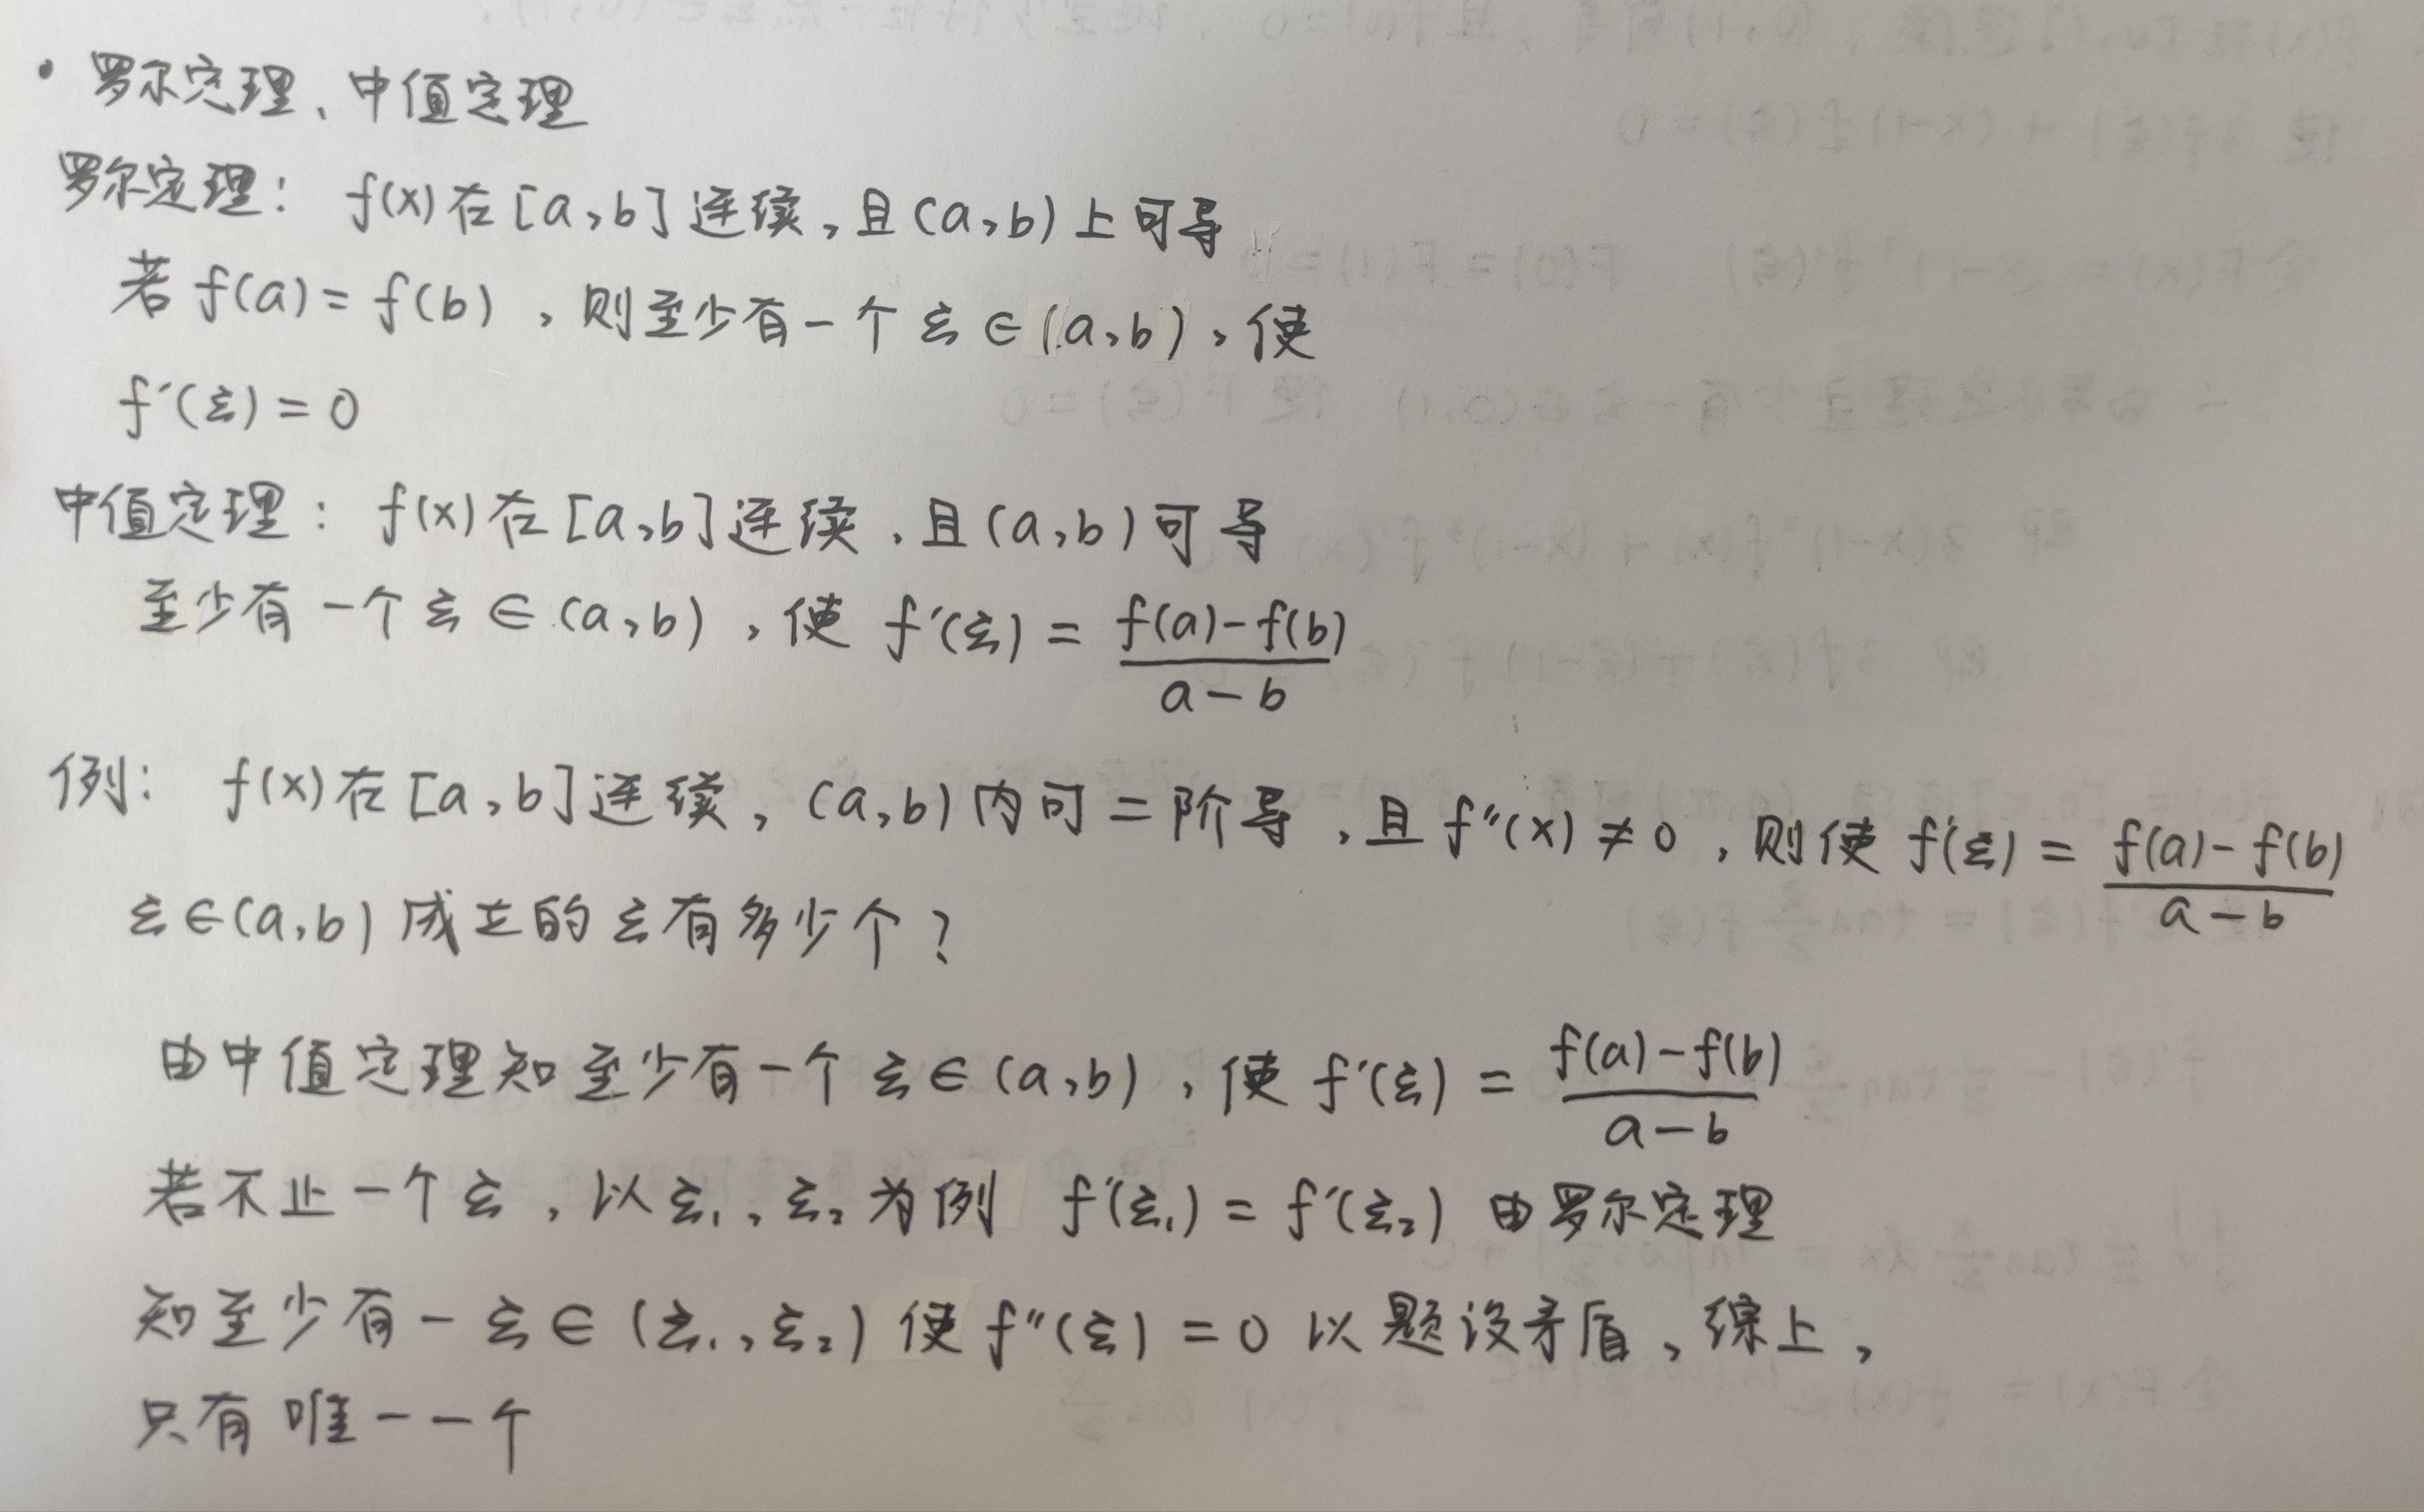 · 罗尔定理、中值定理
罗尔定理: f(x)在[a,b]连续,且(a,b)上可导
若f(a)=f(b),则至少有一个ξ∈(a,b),使
f′(ξ)=0
中值定理: f(x)在[a,b]连续,且(a,b)可导
至少有一个ξ∈(a,b),使 f′(ξ)= \frac{f(a)-f(b)}{a-b}
例: f(x)在[a,b]连续,(a,b)内可二阶导,且f″(x)≠0,则使f′(ξ)= \frac{f(a)-f(b)}{a-b}
ξ∈(a,b)成立的ξ有多少个?
由中值定理知至少有一个ξ∈(a,b),使f′(ξ)= \frac{f(a)-f(b)}{a-b}
若不止一个ξ,以ξ₁,ξ₂为例 f′(ξ₁)=f′(ξ₂) 由罗尔定理
知至少有一ξ∈(ξ₁,ξ₂)使f″(ξ)=0以题设矛盾,综上,
只有唯一一个